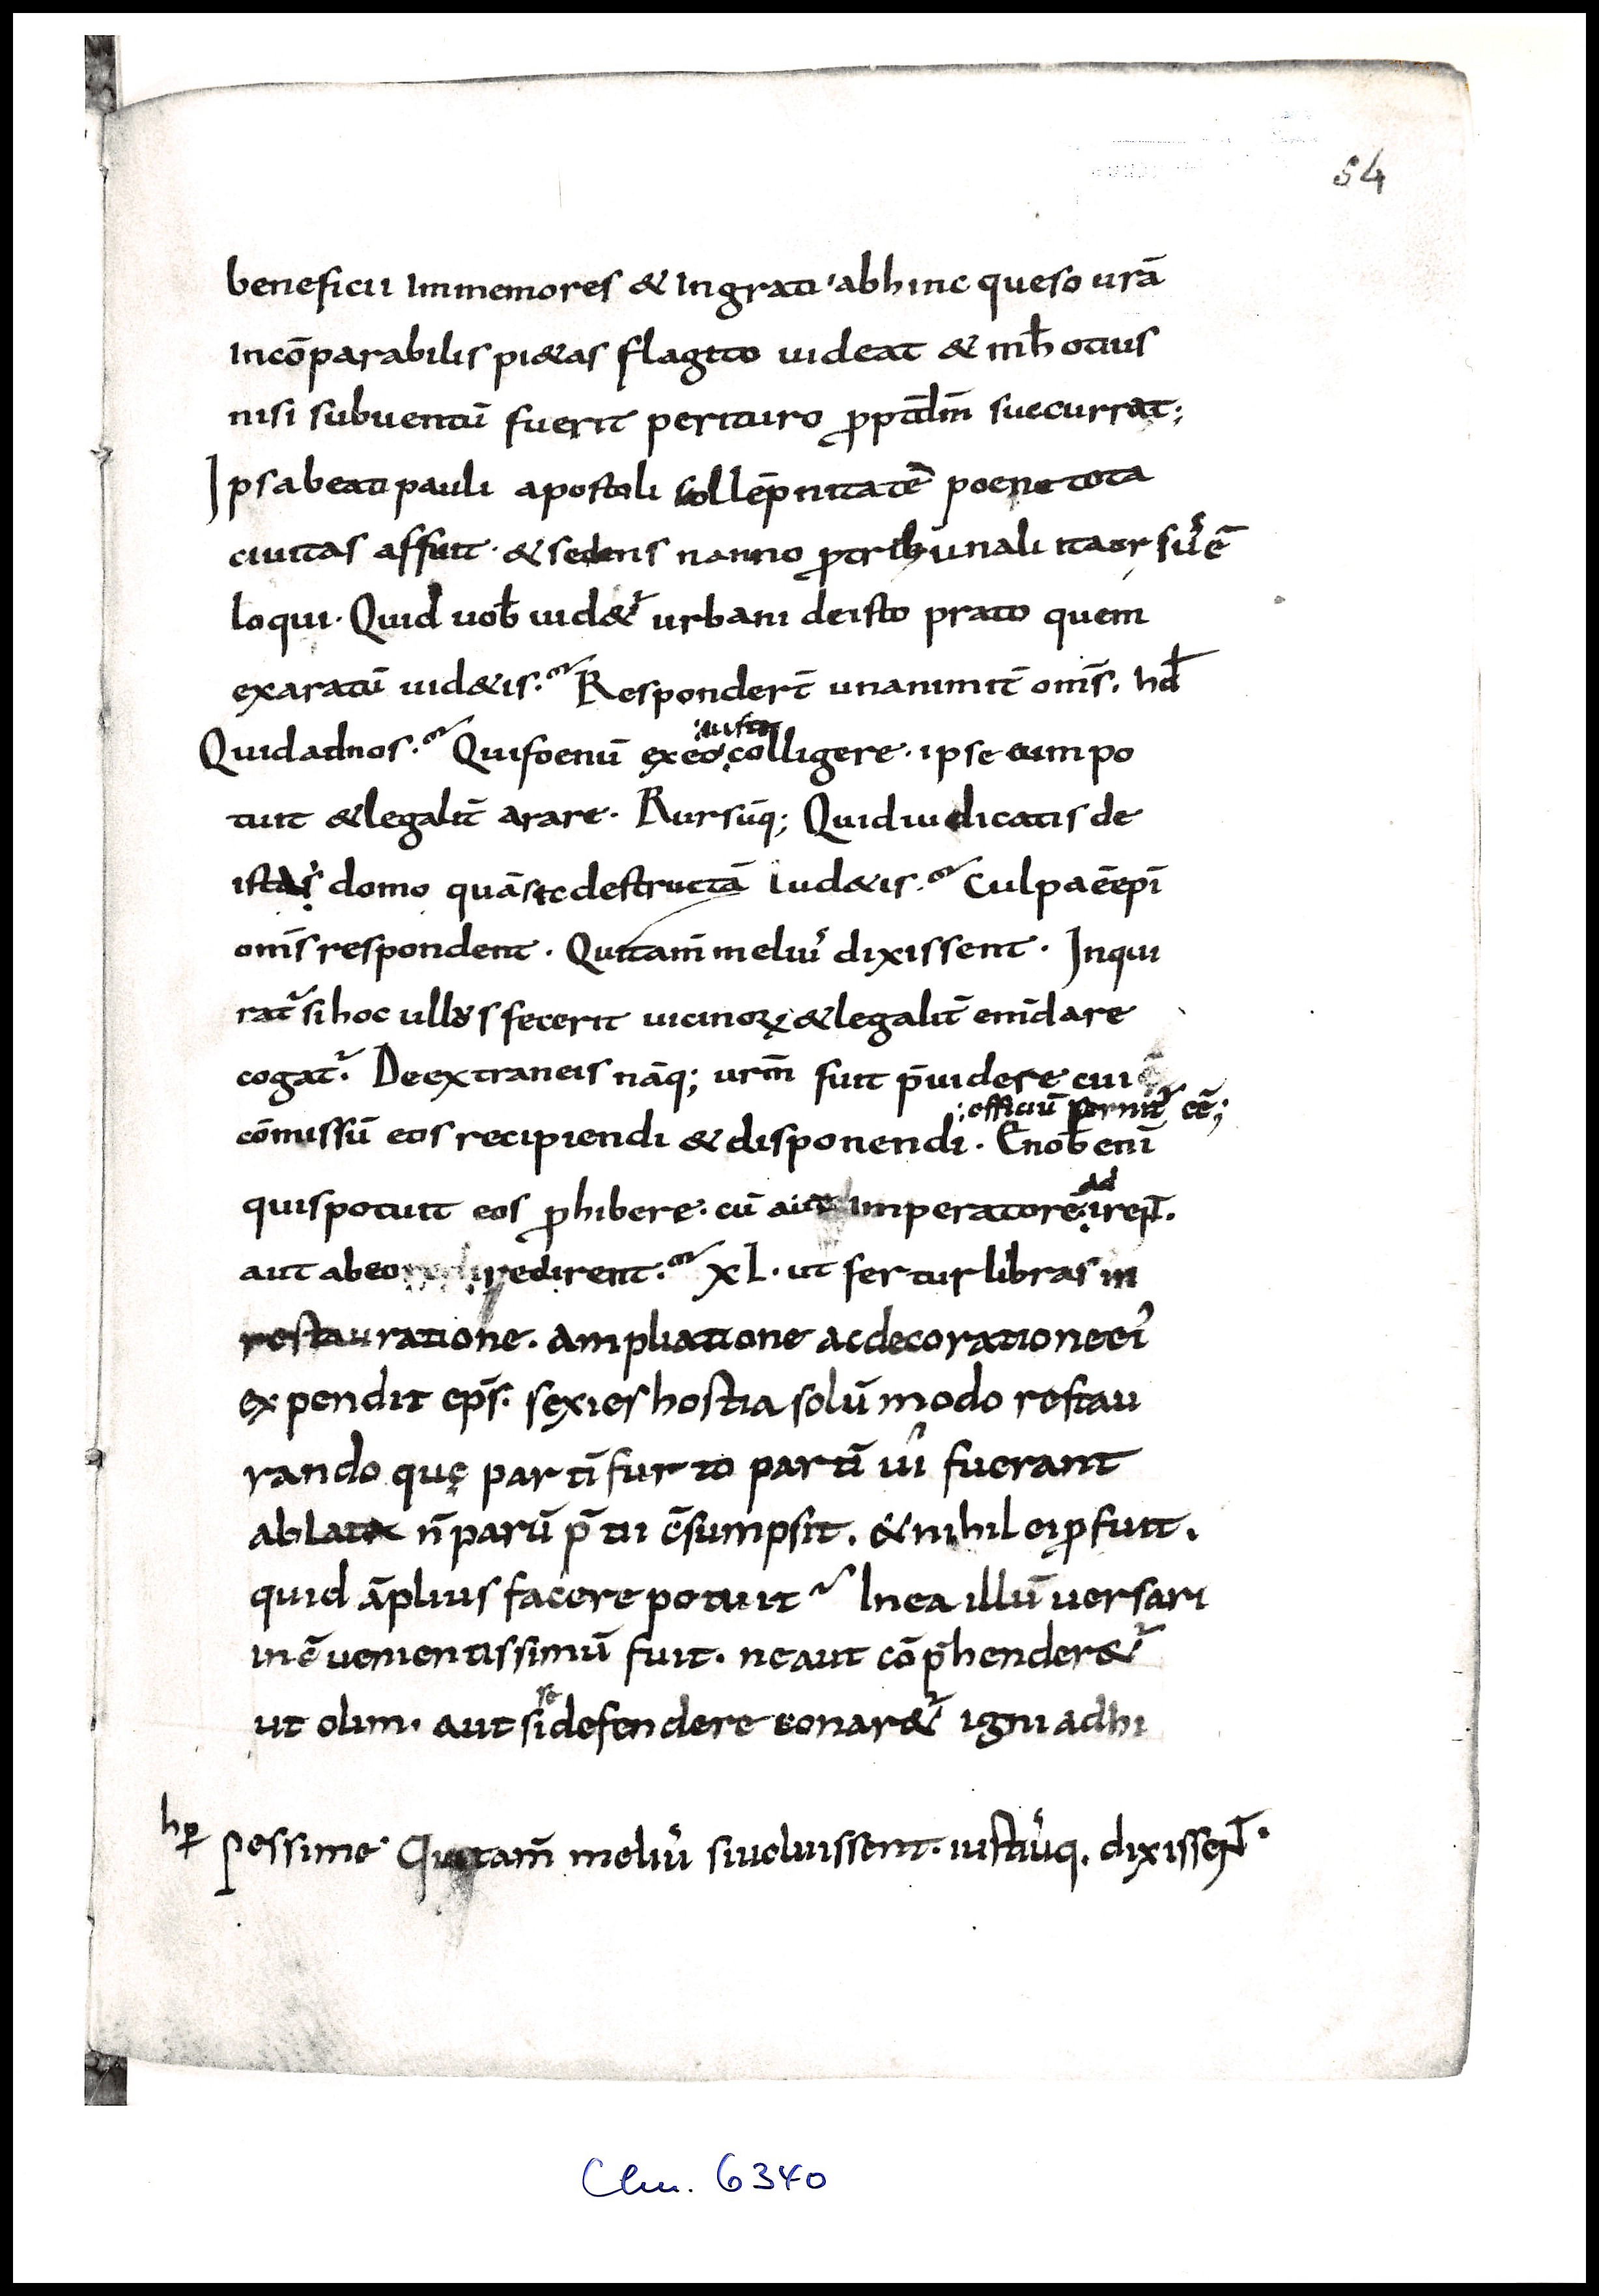 54
beneficii Inmemores & Ingrati abhinc queso urā
Incōparabilis pi&as flagito uideat & mℏ otius
nisi subuentū fuerit perituro ꝓptdm̄ succurrat;
Ipsa beati pauli apostoli sollēpnitatē poene tota
ciuitas affuit · & sedens nanno ꝓ tribunali ita orsus ē
loqui · Quid uob̄ uid&ʳ urbani de isto prato quem
exaratū uid&is · Respondert̄ unanimit̄ om̄s . hd̄
Quid ad nos · Qui foenū ex eo iussit colligere · ipse eum po
tuit & legalit̄ arare · Rursūq; Quid iudicatis de
ista domo quā sic destructā Iud&is · Culpa ē ep̄i
om̄s respondent · Qui tam̄ meliuˢ dixissent · Inqui
ratʳ si hoc ullus fecerit uicinoꝝ & legalit̄ em̄dare
cogatʳ · De extraneis nāq; urm̄ fuit p̄uidere cui
officiū cē;
cōmissū eos recipiendi & disponendi · E nob̄ enī
quis potuit eos ꝓhibere · cū aut ad imperatorē irent̄ .
aut ab eo redirent · XL · ut fertur libras in
restauratione . ampliatione ac decoratione eiˀ
expendit ep̄s . sexies hostia solūmodo restau
rando quę partī furto partī ui fuerant
ablata n̄ parū p̄tii c̄sumpsit . & nihil ei ꝓfuit .
quid āplius facere potuit In ea illū uersari
in c̄uenientissimū fuit . ne aut cōp̄hender&ʳ
ut olim . aut si se defendere conar&ʳ igni adhi
hp̄ pessime Qui tam̄ meliuˢ si uoluissent . iustiuˢq . dixissent̄ .
Clm. 6340